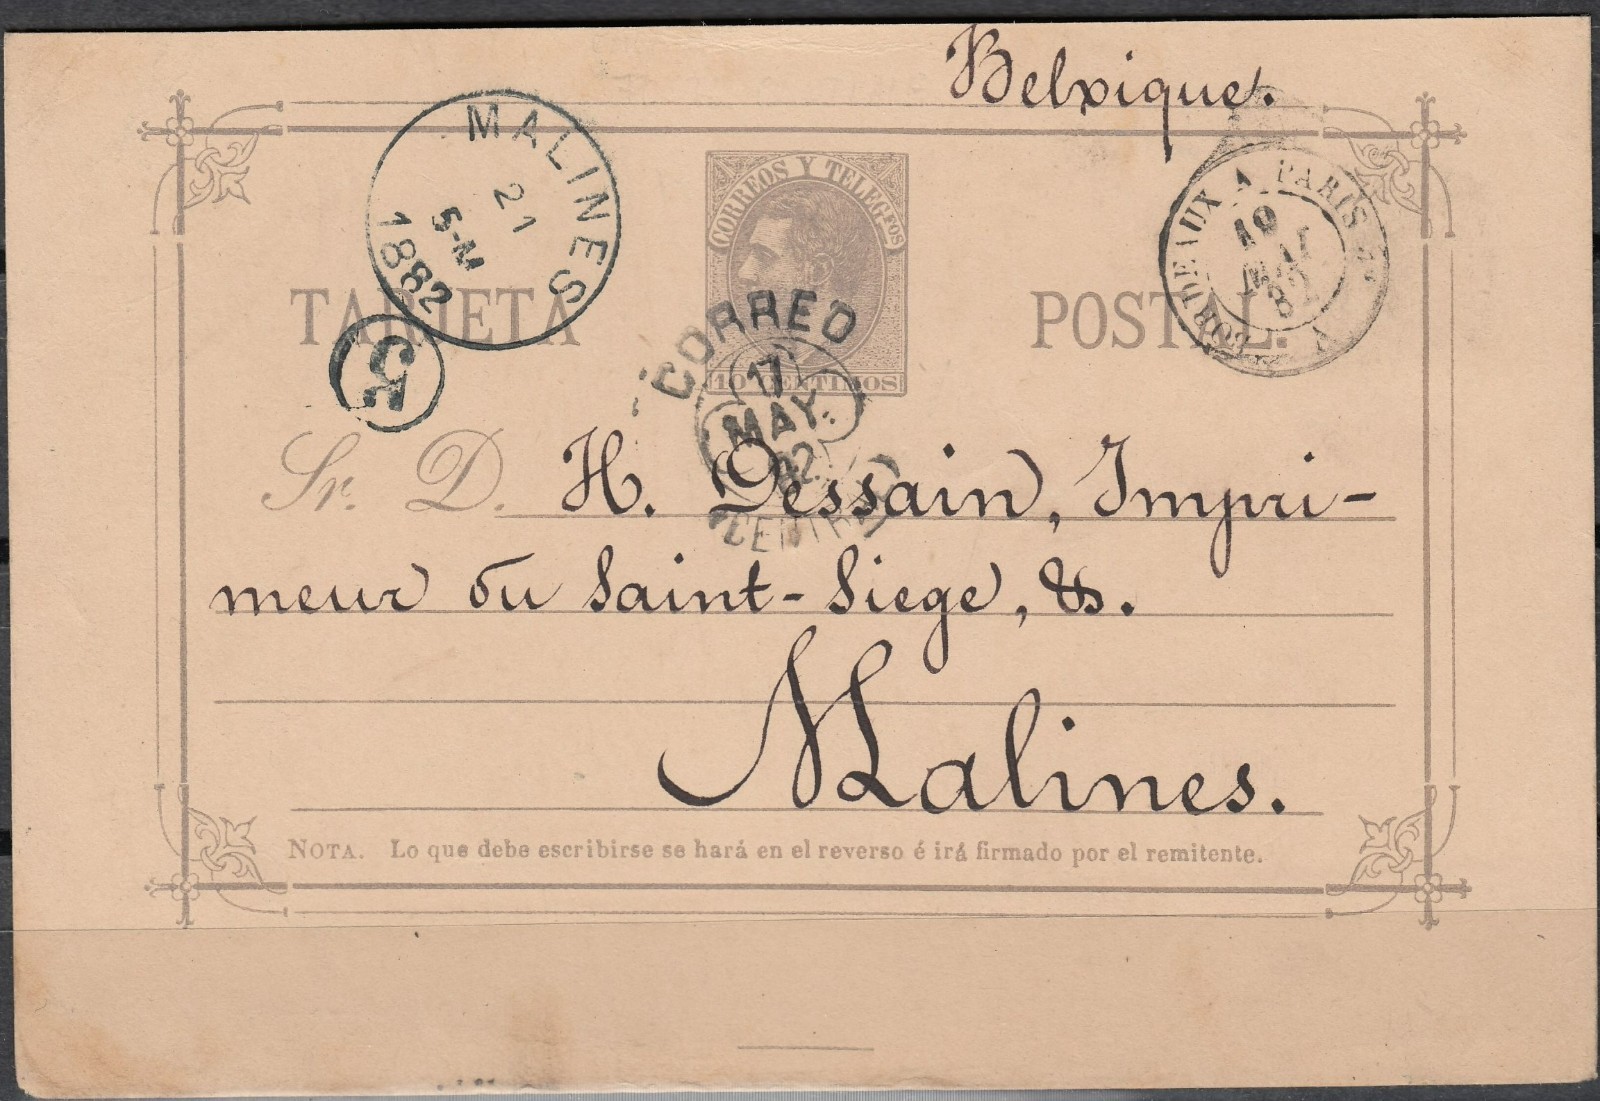 Belgique.
MALINES
21
5-M
1882
CORREOS Y TELEGFOS
10 CENTIMOS
BORDEAUX A PARIS
19
MAI
82
TARJETA POSTAL.
5
CORREO
17
MAY.
82
CENTRAL
Sr. D. H. Dessain, Impri-
meur du Saint-Siege, &.
Malines.
NOTA. Lo que debe escribirse se hará en el reverso é irá firmado por el remitente.